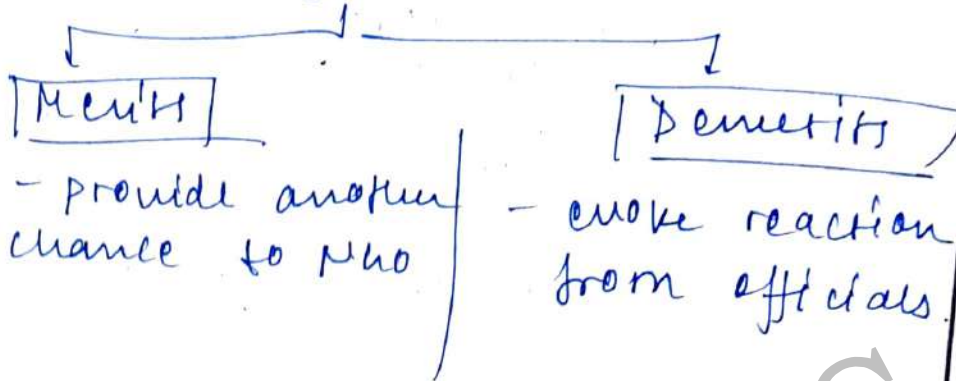 Merits
- provide another
chance to NGO
Demerits
- evoke reaction
from officials.